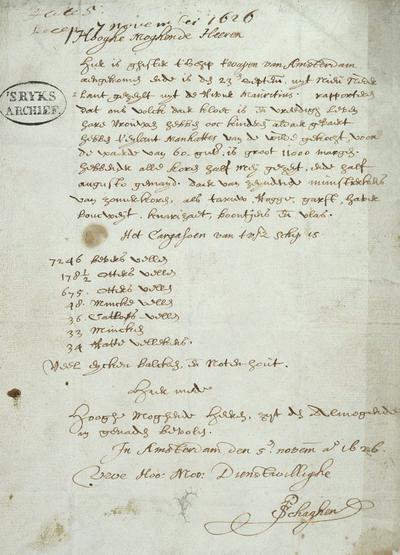 Recep. 7 november 1626
Hooghe Moghende Heeren
Hier is ghister t'Schip t'wapen van Amsterdam
aengekomen ende is den 23en septem. uyt Nieu Neder
Lant gezeylt uyt de Rivier Mauritius. rapporteren
dat ons volck daer kloec is en vreedigh leven
hare Vrouwen hebben ooc kinderen aldaer gebaert
hebben t'eylant Manhattes van de wilde gekocht, voor
de waerde van 60. guld. is groot 11000 morgen
hebbende alle koren half mey gezeyt, ende half
augusto gemayd. daer van zeyndende munsterkens
van zomerkoren, als tarwe, Rogge, garst, haver
boucweyt, knarizaet, boontjens en vlas.
Het Cargasoen van t'vsz schip is
7246 Bevers vellen
178½ Otters vellen
675. Otters vellen
48. Mincke vellen
36 Catloes vellen
33 Mincken
34 Ratte vellekens.
Veel eycken balcken, en Noten hout.
Hier mede
Hooghe Moghende Heeren, zyt den Almogende
in genaden bevolen.
In Amsterdam den 5en novem. ao 1626.
Uwe Hoo: Moo: Dienstwillighe
P Schaghen
'SRYKS
ARCHIEF